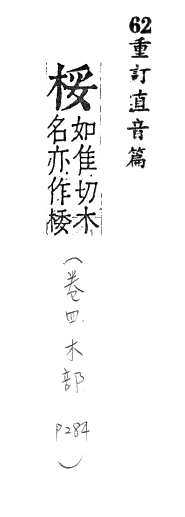 62重訂直音篇
桵
如隹切木
名亦作㮃
(卷四.木部 P284)